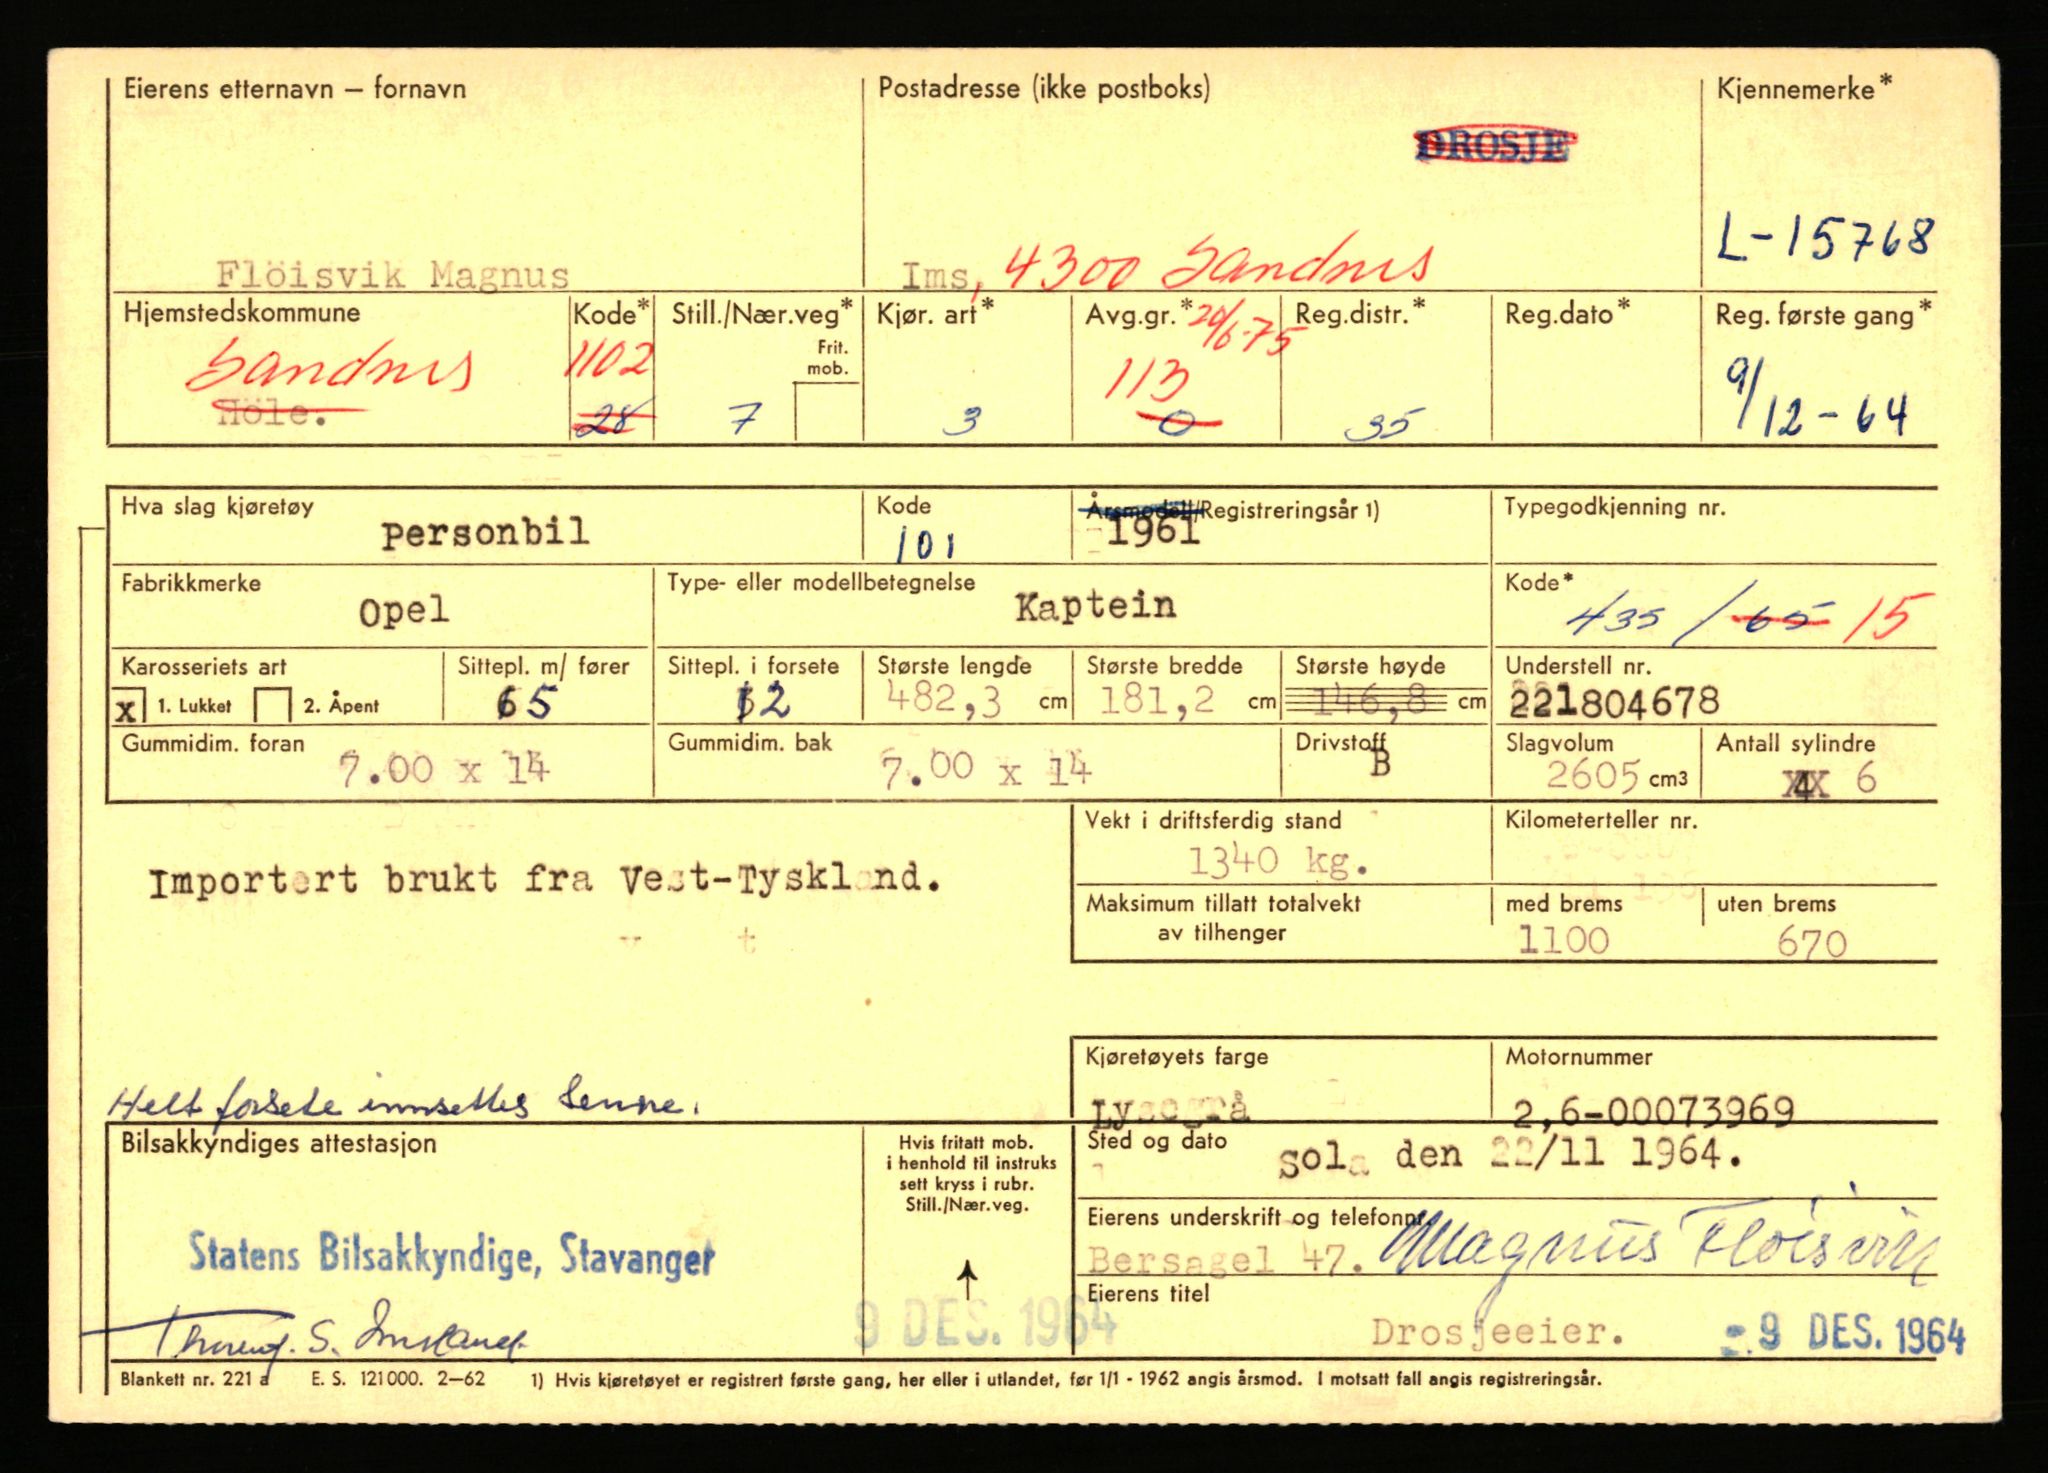 Eierens etternavn – fornavn
Postadresse (ikke postboks)
Kjennemerke*
DROSJE
L-15768
Flöisvik Magnus
Ims, 4300 Sandnes
Hjemstedskommune
Kode*
Still./Nær.veg*
Frit. mob.
Kjør. art*
Avg.gr.*
20/6-75
Reg.distr.*
Reg.dato*
Reg. første gang*
Sandnes
1102
113
Höle.
28
7
3
0
35
9/12-64
Hva slag kjøretøy
Personbil
Kode
101
Årsmodell/Registreringsår 1)
1961
Typegodkjenning nr.
Fabrikkmerke
Opel
Type- eller modellbetegnelse
Kaptein
Kode*
435 / 65 15
Karosseriets art
x 1. Lukket 2. Åpent
Sittepl. m/ fører
5
Sittepl. i forsete
2
Største lengde
482,3 cm
Største bredde
181,2 cm
Største høyde
146,8 cm
Understell nr.
221804678
Gummidim. foran
7.00 x 14
Gummidim. bak
7.00 x 14
Drivstoff
B
Slagvolum
2605 cm3
Antall sylindre
6
Vekt i driftsferdig stand
1340 kg.
Kilometerteller nr.
Importert brukt fra Vest-Tyskland.
Maksimum tillatt totalvekt
av tilhenger
med brems
1100
uten brems
670
Kjøretøyets farge
Lysegrå
Motornummer
2,6-00073969
Helt forsete innsettes senere.
Bilsakkyndiges attestasjon
Hvis fritatt mob.
i henhold til instruks
sett kryss i rubr.
Still./Nær.veg.
Sted og dato
Sola den 22/11 1964.
Eierens underskrift og telefonnr.
Bersagel 47. Magnus Flöisvik
Statens Bilsakkyndige, Stavanger
Eierens titel
Drosjeeier.
9 DES. 1964
9 DES. 1964
Blankett nr. 221 a E. S. 121000. 2–62 1) Hvis kjøretøyet er registrert første gang, her eller i utlandet, før 1/1 - 1962 angis årsmod. I motsatt fall angis registreringsår.